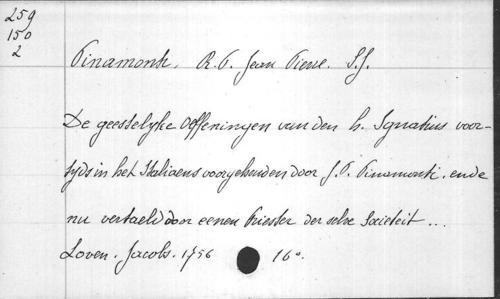 259
150
2
Pinamonti, R.P. Jean Pierre. S.J.
De geestelyke Oeffeningen van den h. Ignatius voor-
tyds in het Italiaens voorgehouden door J.P. Pinamonti. ende
nu vertaeld door eenen Priester der selve Societeit ...
Loven. Jacobs. 1756 16°.